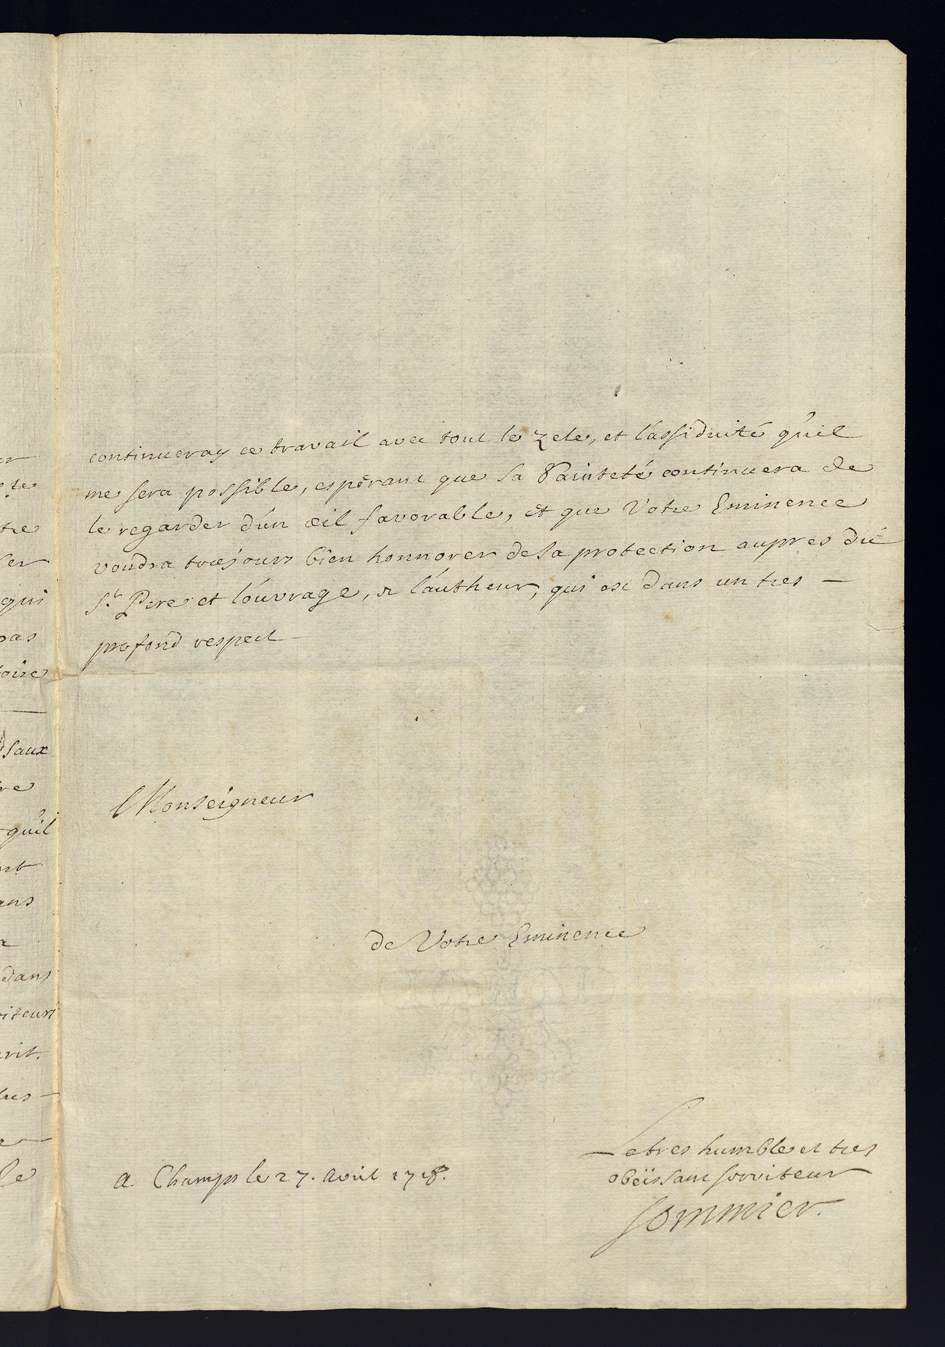 continueray ce travail avec tout le zele, et l'assiduité qu'il
me sera possible, espérant que sa Sainteté continuera de
le regarder d'un œil favorable, et que Votre Eminence
voudra toujours bien honnorer de sa protection aupres du
St. Pere et l'ouvrage, et l'autheur, qui est dans un tres —
profond respect
Monseigneur
de Votre Eminence
Le tres humble et tres
obëissant serviteur
A Champs le 27. Avril 1718.
Sommier.